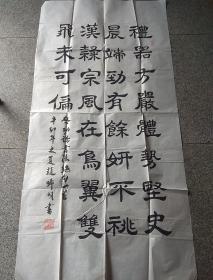 禮器方嚴體勢堅史
晨端勁有餘妍不祧
漢隸宗風在鳥翼雙
飛未可偏
辛卯年之夏
書